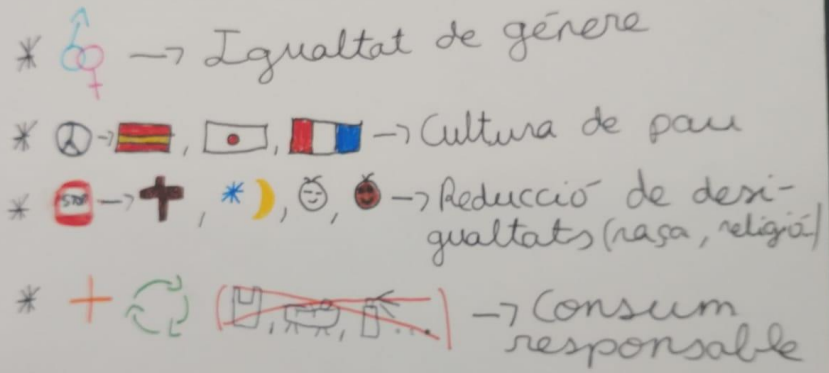 * → Igualtat de génere
* → , , → Cultura de pau
* STOP → , , , → Reducció de desi-
gualtats (raça, religió)
* + ( , , ... ) → Consum
responsable